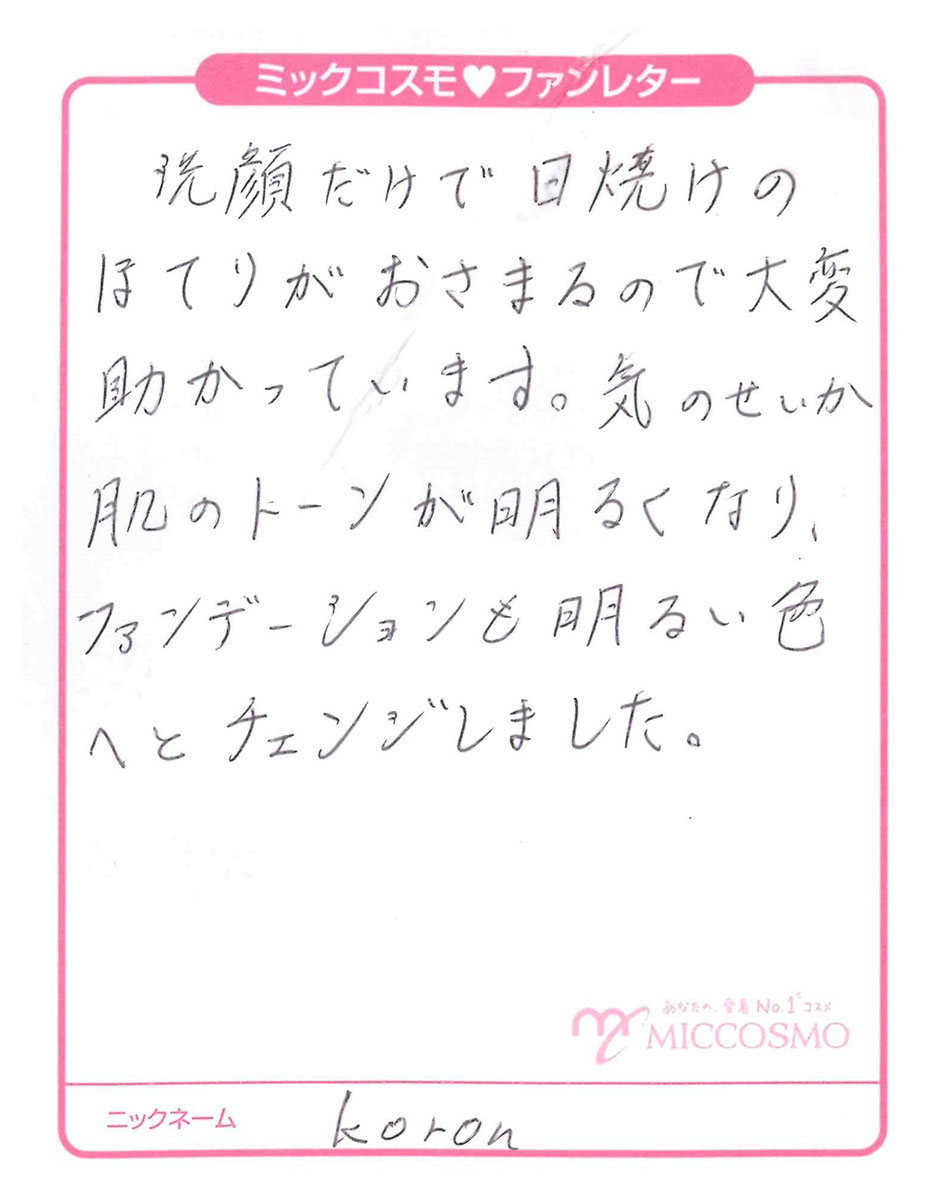 ミックコスモ♥ファンレター
洗顔だけで日焼けの
ほてりがおさまるので大変
助かっています。気のせいか
肌のトーンが明るくなり、
ファンデーションも明るい色
へとチェンジしました。
あなたの、愛着No.1コスメ
MICCOSMO
ニックネーム koron